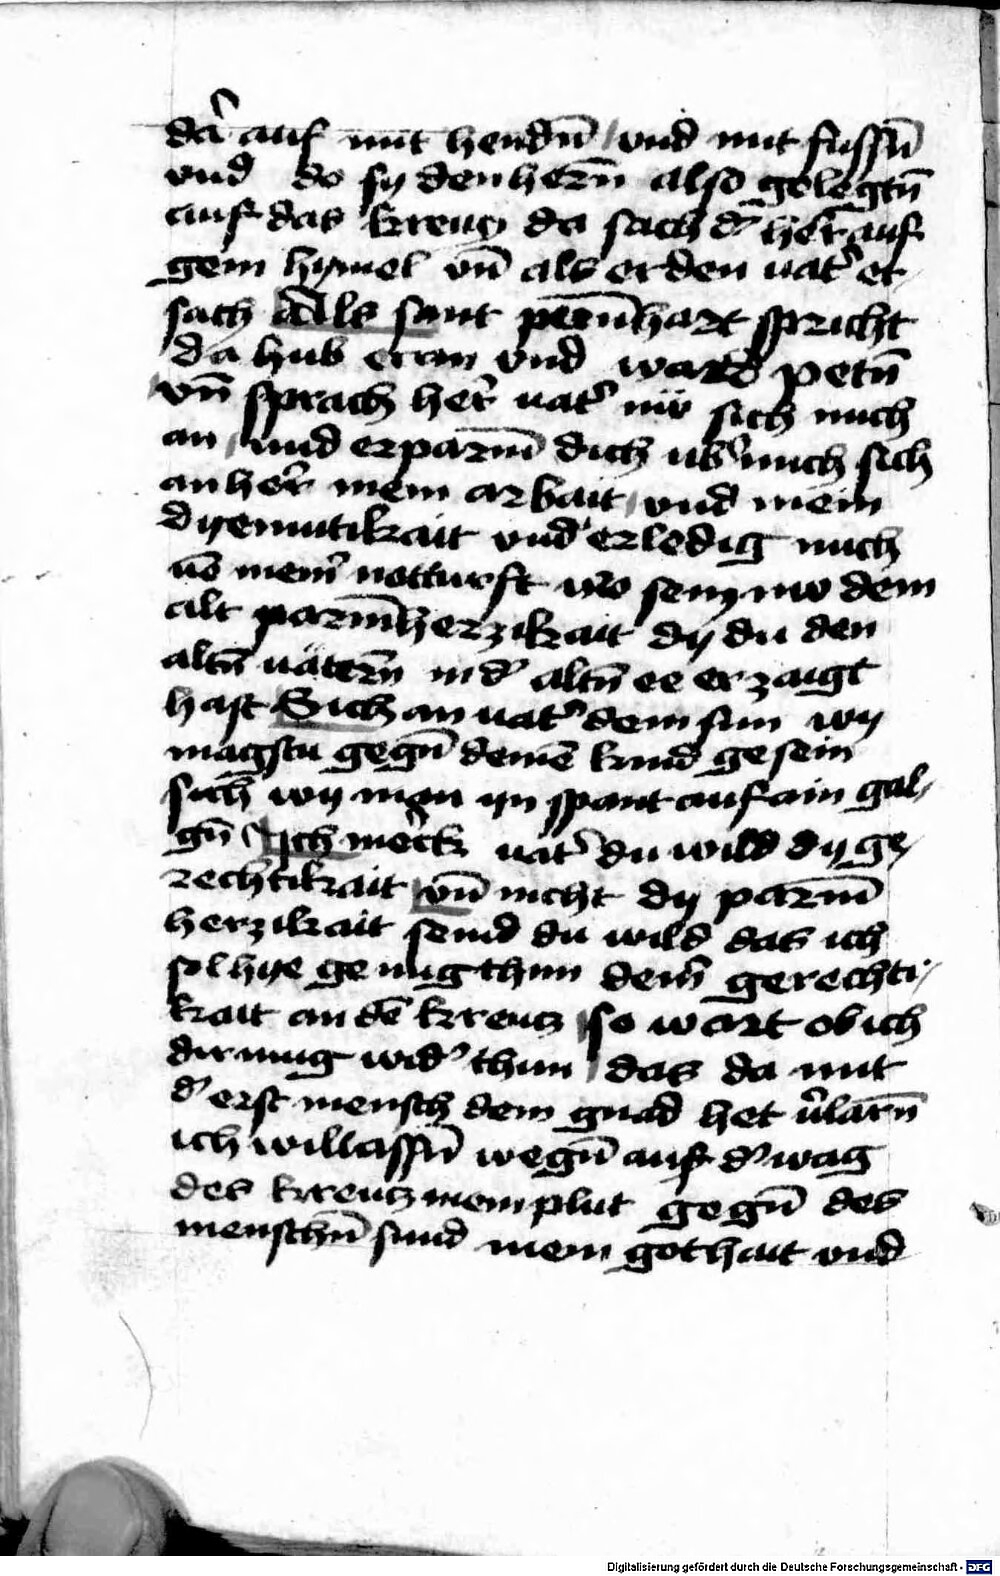 dar auf mit hendn̄ / vnd mit fussn̄
vnd do sy den hern̄ also gelegtn̄
auf das kreucz da sach d' her auf
gem hymel vn̄ als er den uat' er
sach Als sant pern̄hart spricht
da hub er an vnd ward petn̄
vn̄ sprach her uat' nw sich mich
an / vnd erparm̄ dich ub' mich sich
an her mein arbait / vnd mein
dyemutikait vnd erledig mich
mein' notturft wo sein nw dein
alt parm̄herzikait dy du den
altn̄ uätern̄ in d' altn̄ ee erzaigt
hast Sich an uat' dein sun wy
magstu gegn̄ deinē kind gesein
sich wy man yn spant auf ain gal/
gn̄ Ich merck uat' du wild dy ge/
rechtikait vn̄ nicht dy parm̄
herzikait seind du wild das ich
sol hye genug thun dein' gerechti/
kait an dē kreucz / so wart ob ich
dir nuug wid' thun / das da mit
d' erst mensch dein gnad het v'larn̄
ich wil lassn̄ wegn̄ auf d' wag
des kreucz mein plut gegn̄ des
menschn̄ sund mein gothait vnd
Digitalisierung gefördert durch die Deutsche Forschungsgemeinschaft - DFG